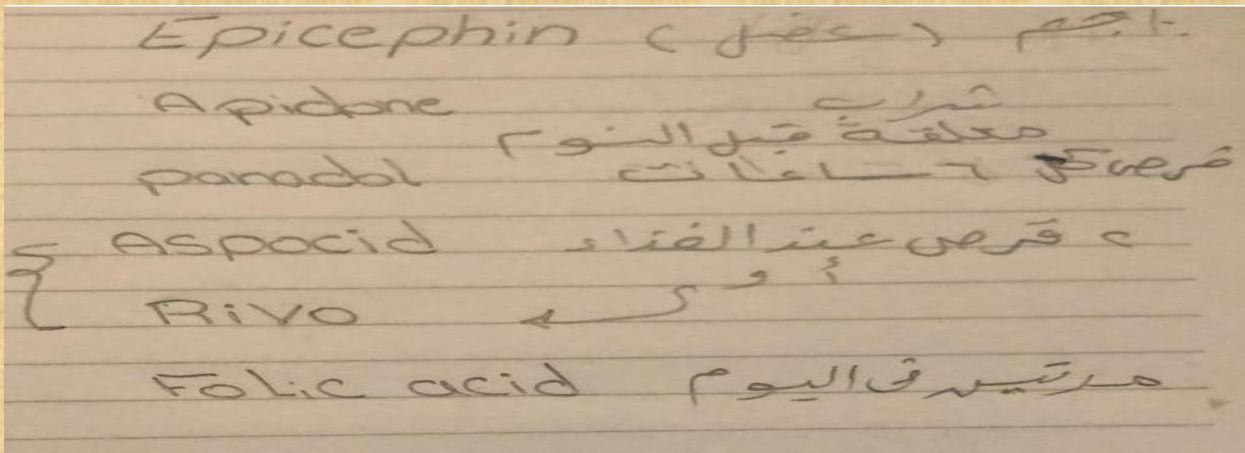 Epicephin (عضل) ١ جم
Apidone شراب
معلقة قبل النوم
panadol قرص كل ٦ ساعات
Aspocid ٢ قرص عند الغداء
أو
RiVO
Folic acid مرتين فى اليوم